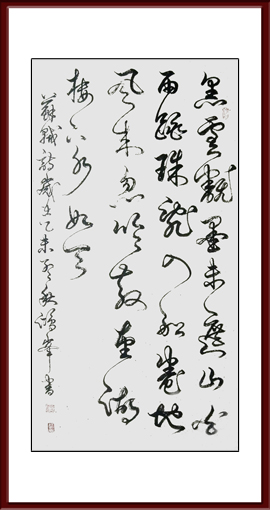 黑雲翻墨未遮山白
雨跳珠亂入船卷地
風來忽吹散望湖
樓下水如天
蘇軾詩歲在乙未秋峯書